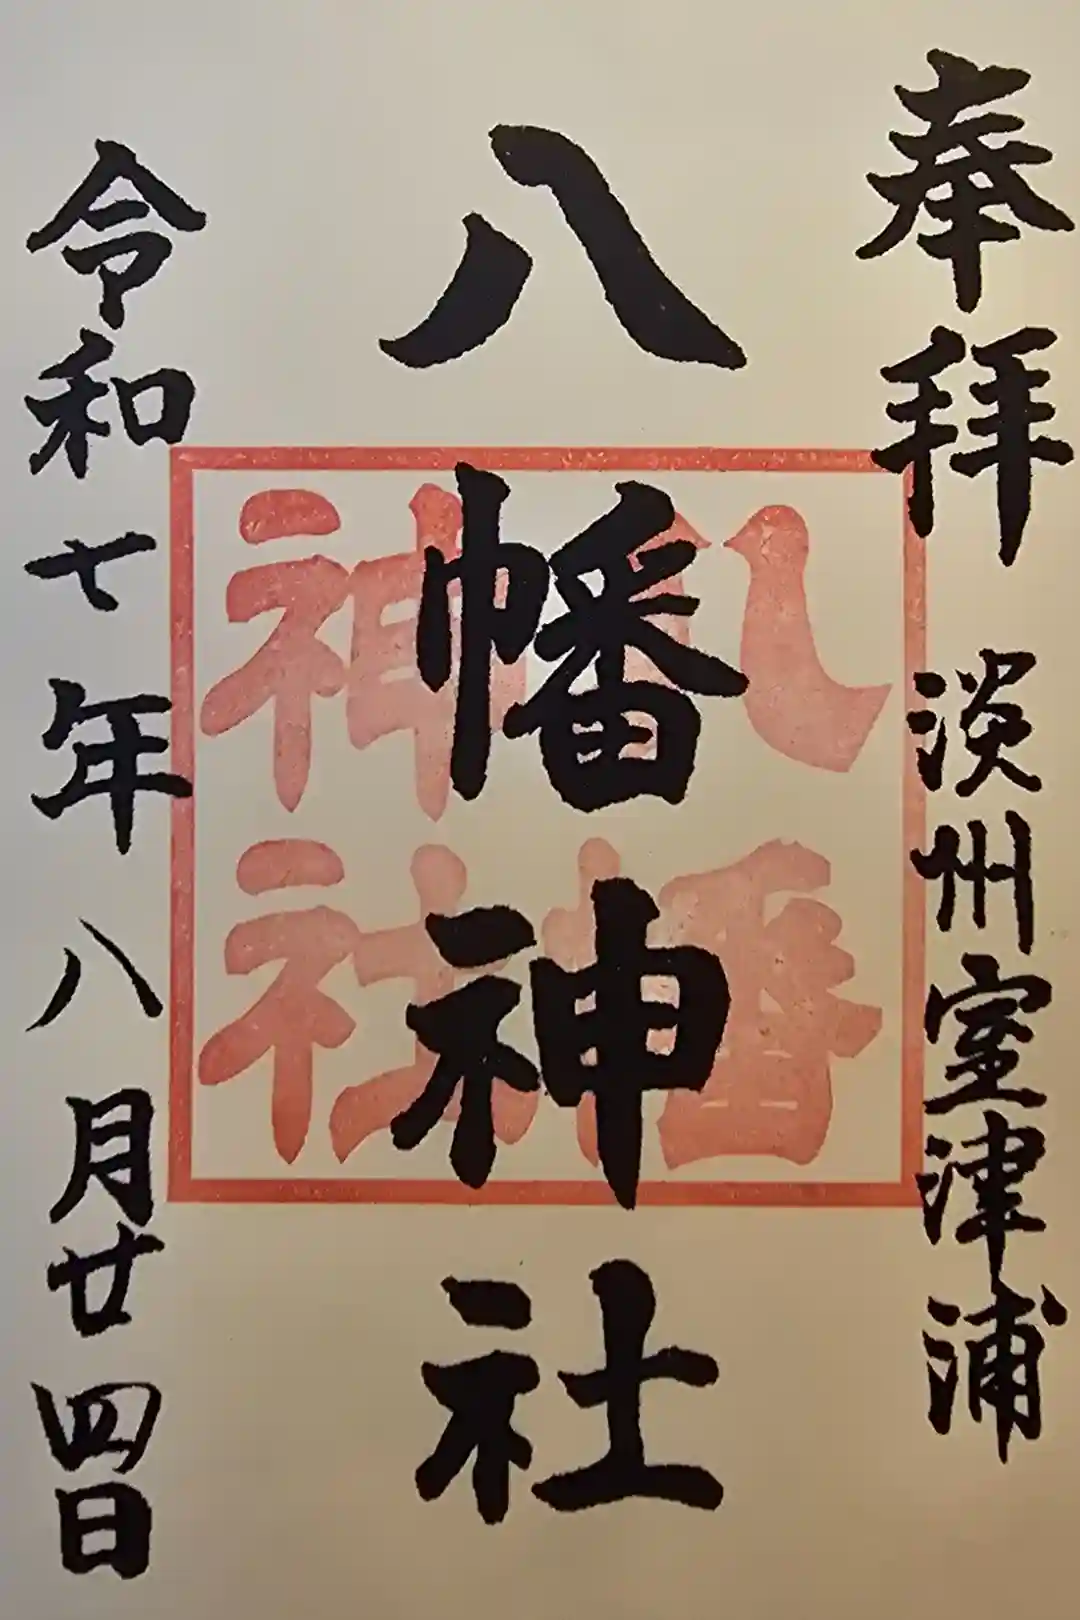 奉拝 淡州室津浦
八幡神社
八幡
神社
令和七年八月廿四日